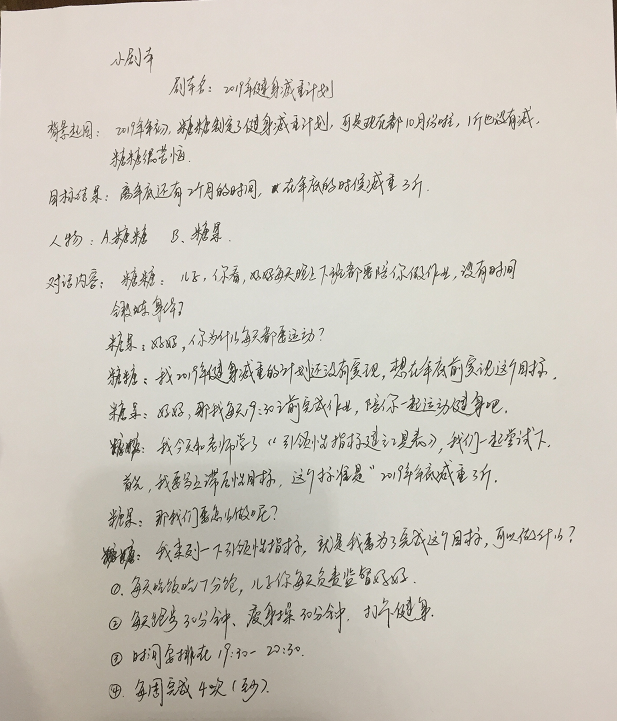 小剧本
剧本名：2019年健身减重计划
背景起因：2019年年初，糖糖制定了健身减重计划，可是现在都10月份啦，1斤也没有减，
糖糖很苦恼.
目标结果：离年底还有2个月的时间，在年底的时候减重3斤.
人物：A.糖糖 B、糖果.
对话内容：糖糖：儿子，你看，妈妈每天晚上下班都要陪你做作业，没有时间
锻炼身体?
糖果：妈妈，你为什么每天都要运动？
糖糖：我2019年健身减重的计划还没有实现，想在年底前实现这个目标.
糖果：妈妈，那我每天19:30之前完成作业，陪你一起运动健身吧.
糖糖：我今天和老师学了《引领性指标建立工具表》，我们一起尝试下.
首先，我要写上滞后性目标，这个标准是"2019年年底减重3斤.
糖果：那我们要怎么做呢？
糖糖：我来列一下引领性指标，就是我要为了完成这个目标，可以做什么？
①.每天吃饭吃7分饱，儿子你每天负责监督妈妈.
② 每天跑步30分钟、瘦身操30分钟.打卡健身.
③ 时间安排在19:30-20:30.
④.每周完成4次(至少).